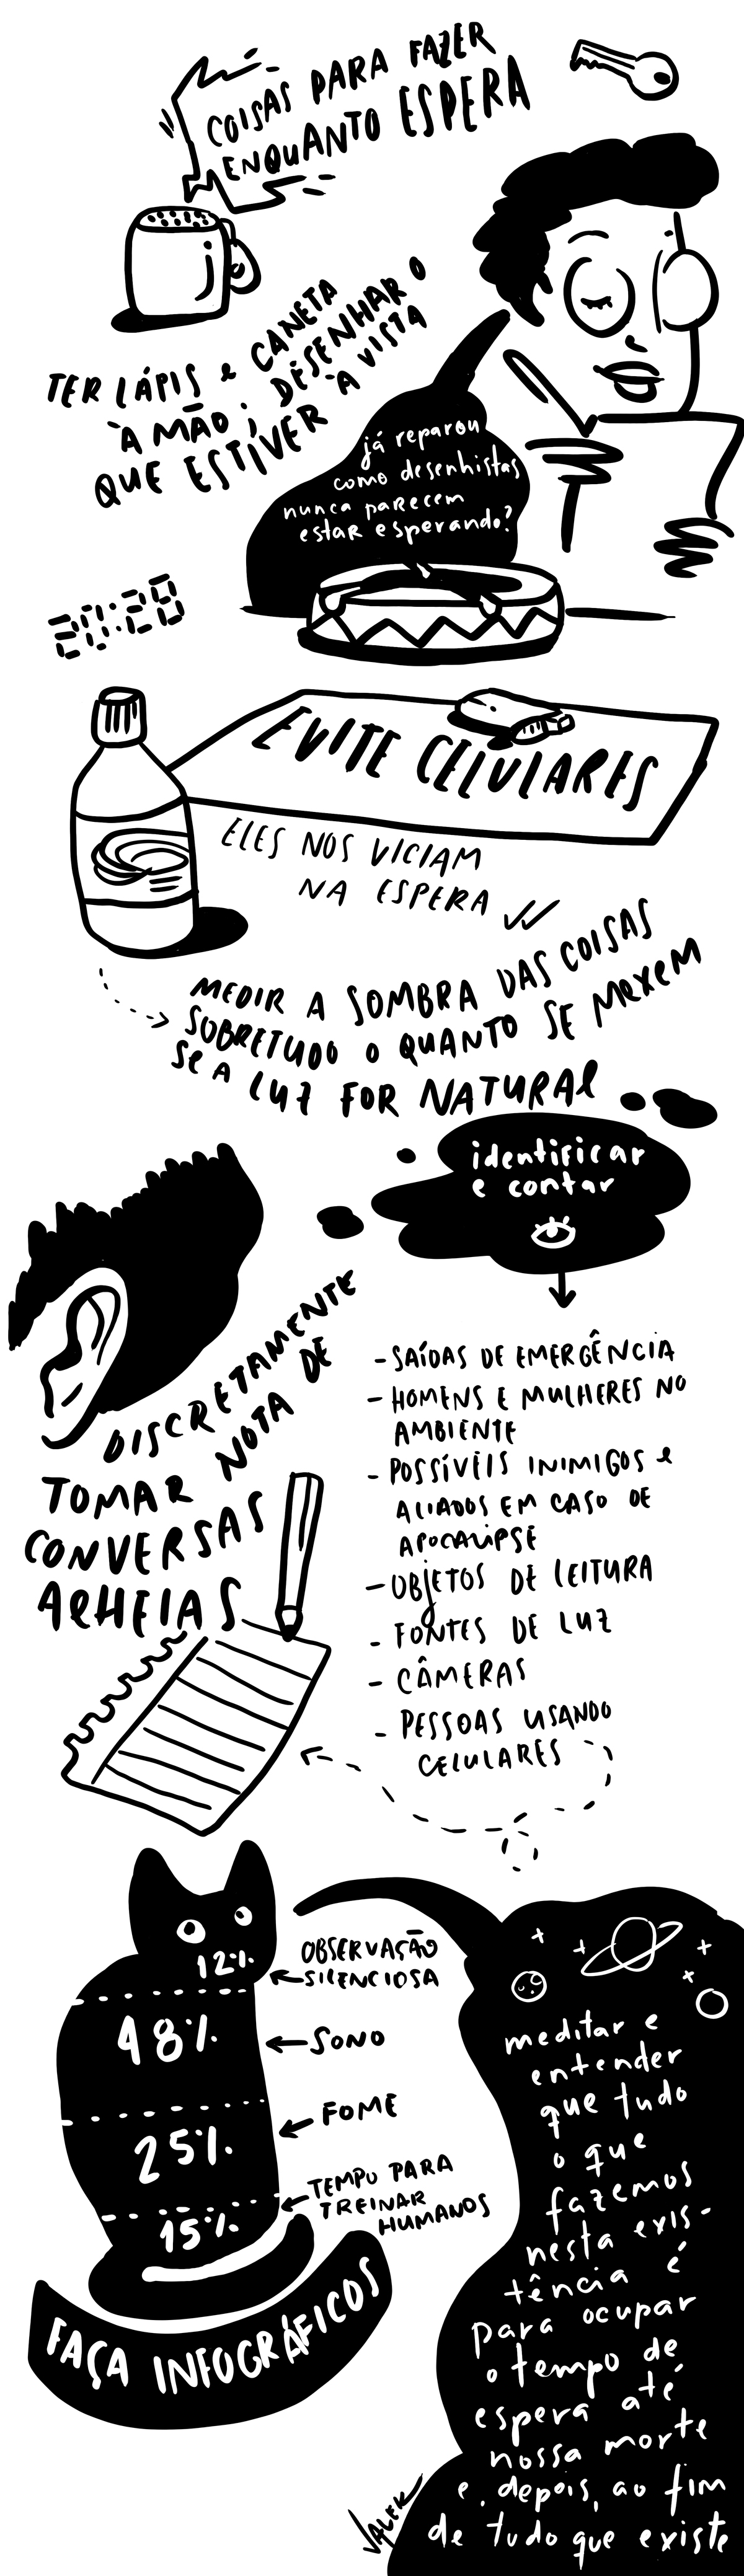 COISAS PARA FAZER
ENQUANTO ESPERA
TER LÁPIS e CANETA
À MÃO; DESENHAR O
QUE ESTIVER À VISTA
já reparou
como desenhistas
nunca parecem
estar esperando?
20:20
EVITE CELULARES
ELES NOS VICIAM
NA ESPERA
MEDIR A SOMBRA DAS COISAS
SOBRETUDO O QUANTO SE MEXEM
SE A LUZ FOR NATURAL
identificar
e contar
- SAÍDAS DE EMERGÊNCIA
- HOMENS E MULHERES NO
AMBIENTE
- POSSÍVEIS INIMIGOS e
ALIADOS EM CASO DE
APOCALIPSE
- OBJETOS DE LEITURA
- FONTES DE LUZ
- CÂMERAS
- PESSOAS USANDO
CELULARES
DISCRETAMENTE
TOMAR NOTA DE
CONVERSAS
ALHEIAS
12%
OBSERVAÇÃO
SILENCIOSA
48%
SONO
25%
FOME
15%
TEMPO PARA
TREINAR
HUMANOS
FAÇA INFOGRÁFICOS
meditar e
entender
que tudo
o que
fazemos
nesta exis-
tência é
para ocupar
o tempo de
espera até
nossa morte
e, depois, ao fim
de tudo que existe
VALEK